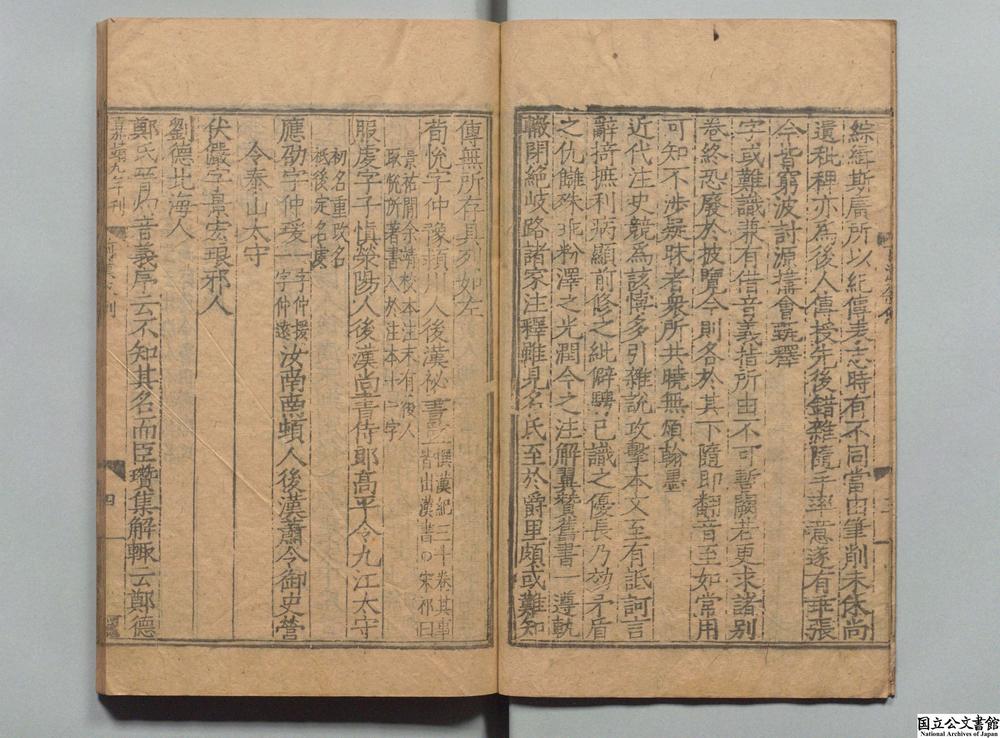 綜緝斯廣所以紀傳表志時有不同當由筆削未休尚
遺秕稗亦爲後人傳授先後錯雜隨手率意遂有乖張
今皆窮波討源搆會甄釋
字或難識兼有借音義指所由不可暫闕若更求諸別
卷終恐廢於披覽今則各於其下隨即翻音至如常用
可知不涉疑昧者衆所共曉無煩翰墨
近代注史競爲該博多引雜說攻擊本文至有詆訶言
辭掎摭利病顯前修之紕僻騁己識之優長乃効矛盾
之仇讎殊乖粉澤之光潤今之注解翼贊舊書一遵軌
轍閉絕岐路諸家注釋雖見名氏至於爵里頗或難知
傳無所存具列如左
荀悅字仲豫潁川人後漢祕書監撰漢紀三十卷其事
皆出漢書〇宋祁曰
景祐閒余靖校本注末有後人
取悅所著書入於注本十二字
服虔字子愼滎陽人後漢尚書侍郎高平令九江太守
初名重改名
祇後定名虔
應劭字仲瑗一字仲援
一字仲遠汝南南頓人後漢蕭令御史營
令泰山太守
伏儼字景宏琅邪人
劉德北海人
鄭氏晉灼音義序云不知其名而臣瓚集解輒云鄭德
嘉靖九年刊
四
国立公文書館
National Archives of Japan